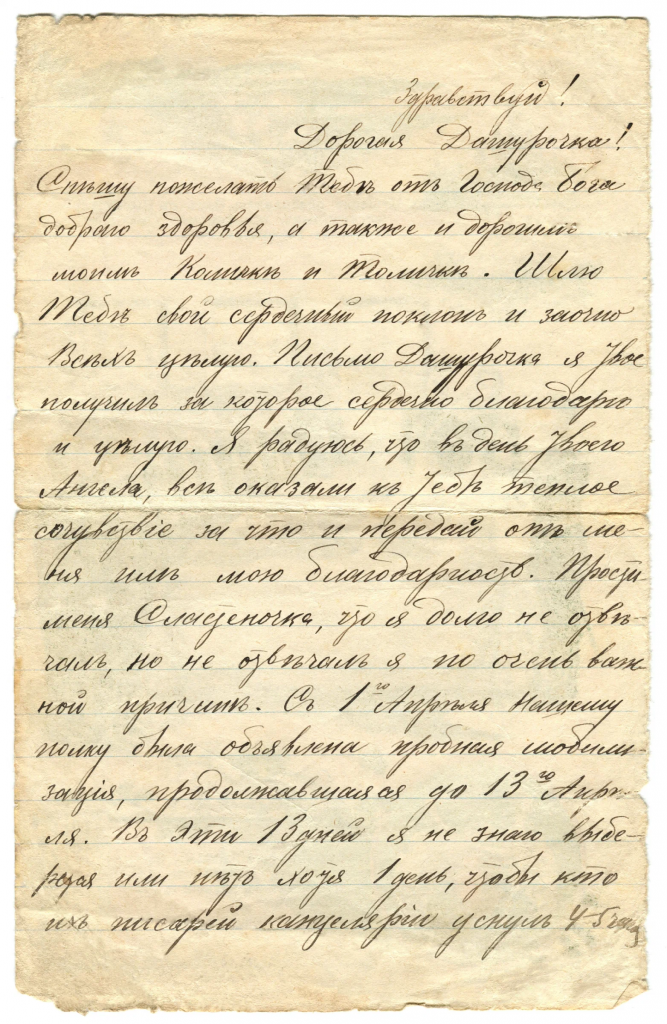 Здравствуй!
Дорогая Дашурочка!
Спѣшу пожелать Тебѣ отъ Господа Бога
добраго здоровья, а также и дорогимъ
моимъ Каличкѣ и Толичкѣ. Шлю
Тебѣ свой сердечный поклонъ и заочно
Всѣхъ цѣлую. Письмо Дашурочка я Твое
получилъ за которое сердечно благодарю
и цѣлую. Я радуюсь, что въ день Твоего
Ангела, всѣ оказали къ Тебѣ теплое
сочувствіе за что и передай отъ ме-
ня имъ мою благодарность. Прости
меня Сластеночка, что я долго не отвѣ-
чалъ, но не отвѣчалъ я по очень важ-
ной причинѣ. Съ 1го Апрѣля нашему
полку была объявлена пробная мобили-
зація, продолжавшаяся до 13го Апрѣ-
ля. Въ эти 13 дней я не знаю выбе-
рется или нѣтъ хотя 1 день, чтобы кто
изъ писарей канцеляріи уснулъ 4-5 час